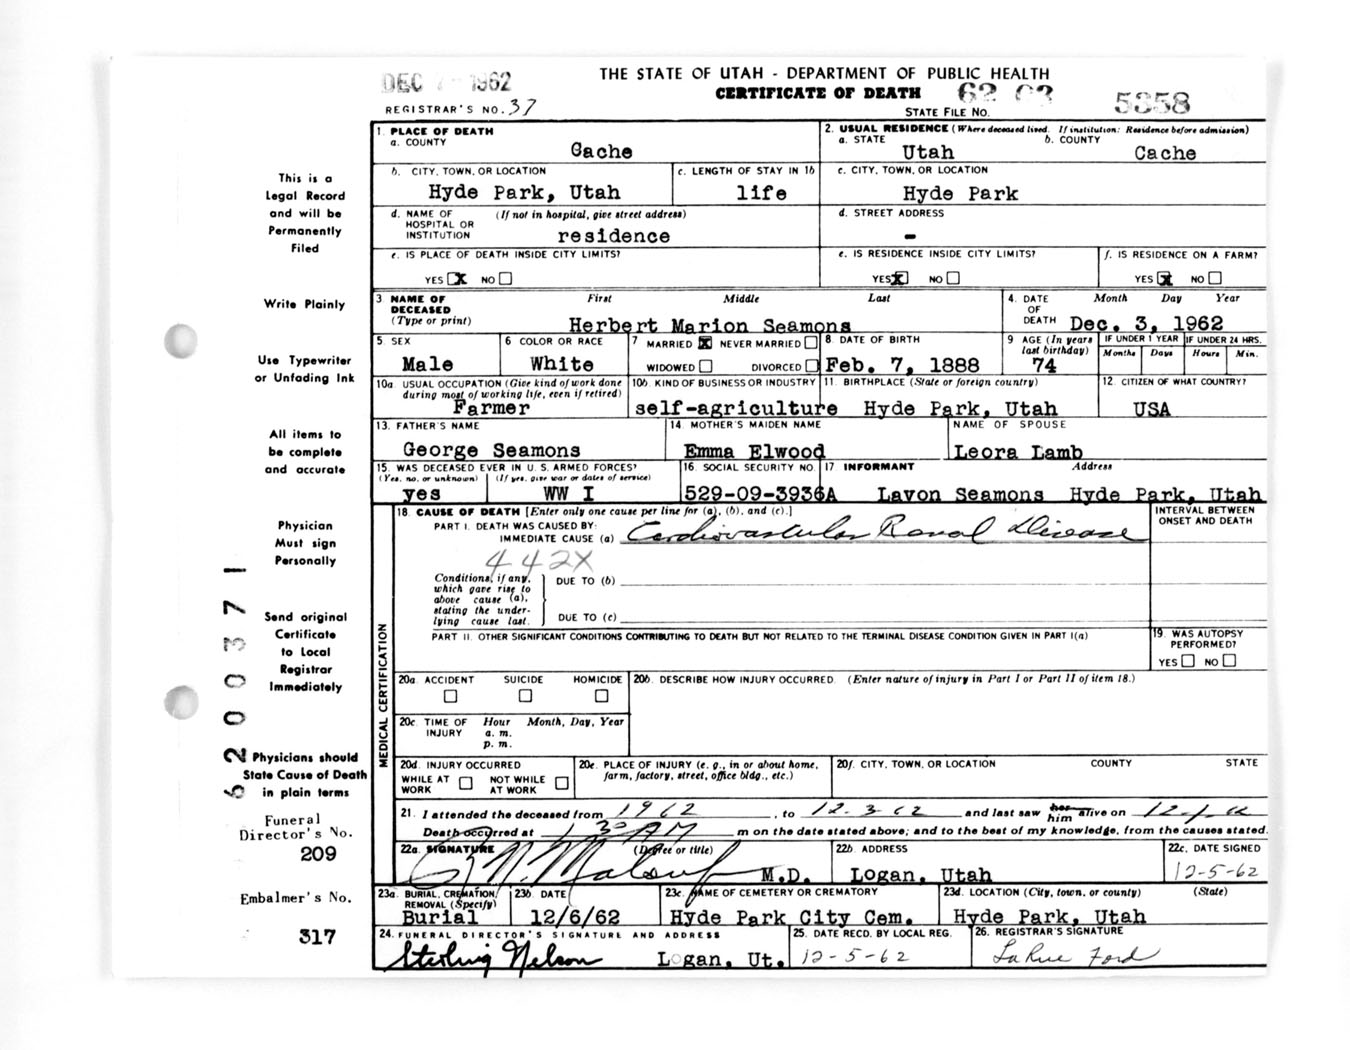 DEC 1962
THE STATE OF UTAH - DEPARTMENT OF PUBLIC HEALTH
CERTIFICATE OF DEATH
REGISTRAR'S NO. 37
STATE FILE No. 62 5358
This is a
Legal Record
and will be
Permanently
Filed
Write Plainly
Use Typewriter
or Unfading Ink
All items to
be complete
and accurate
Physician
Must sign
Personally
Send original
Certificate
to Local
Registrar
Immediately
Physicians should
State Cause of Death
in plain terms
Funeral
Director's No.
209
Embalmer's No.
317
1. PLACE OF DEATH
a. COUNTY
Cache
2. USUAL RESIDENCE (Where deceased lived. If institution: Residence before admission)
a. STATE b. COUNTY
Utah Cache
b. CITY, TOWN, OR LOCATION
Hyde Park, Utah
c. LENGTH OF STAY IN 1b
life
c. CITY, TOWN, OR LOCATION
Hyde Park
d. NAME OF (If not in hospital, give street address)
HOSPITAL OR
INSTITUTION residence
d. STREET ADDRESS
-
e. IS PLACE OF DEATH INSIDE CITY LIMITS?
YES X NO
e. IS RESIDENCE INSIDE CITY LIMITS?
YES X NO
f. IS RESIDENCE ON A FARM?
YES X NO
3 NAME OF First Middle Last
DECEASED
(Type or print) Herbert Marion Seamons
4. DATE Month Day Year
OF
DEATH Dec. 3, 1962
5. SEX
Male
6 COLOR OR RACE
White
7 MARRIED X NEVER MARRIED
WIDOWED DIVORCED
8. DATE OF BIRTH
Feb. 7, 1888
9 AGE (In years
last birthday)
74
IF UNDER 1 YEAR
Months Days
IF UNDER 24 HRS.
Hours Min.
10a. USUAL OCCUPATION (Give kind of work done
during most of working life, even if retired)
Farmer
10b. KIND OF BUSINESS OR INDUSTRY
self-agriculture
11. BIRTHPLACE (State or foreign country)
Hyde Park, Utah
12. CITIZEN OF WHAT COUNTRY?
USA
13. FATHER'S NAME
George Seamons
14. MOTHER'S MAIDEN NAME
Emma Elwood
NAME OF SPOUSE
Leora Lamb
15. WAS DECEASED EVER IN U. S. ARMED FORCES?
(Yes, no, or unknown) (If yes, give war or dates of service)
yes WW I
16. SOCIAL SECURITY NO.
529-09-3936A
17. INFORMANT Address
Lavon Seamons Hyde Park, Utah
MEDICAL CERTIFICATION
18. CAUSE OF DEATH [Enter only one cause per line for (a), (b), and (c).]
PART I. DEATH WAS CAUSED BY:
IMMEDIATE CAUSE (a) Cardiovascular Renal Disease
INTERVAL BETWEEN
ONSET AND DEATH
442X
Conditions, if any,
which gave rise to
above cause (a),
stating the under-
lying cause last.
DUE TO (b)
DUE TO (c)
PART II. OTHER SIGNIFICANT CONDITIONS CONTRIBUTING TO DEATH BUT NOT RELATED TO THE TERMINAL DISEASE CONDITION GIVEN IN PART I(a)
19. WAS AUTOPSY
PERFORMED?
YES NO
20a. ACCIDENT SUICIDE HOMICIDE
20b. DESCRIBE HOW INJURY OCCURRED. (Enter nature of injury in Part I or Part II of item 18.)
20c. TIME OF Hour Month, Day, Year
INJURY a. m.
p. m.
20d. INJURY OCCURRED
WHILE AT WORK NOT WHILE AT WORK
20e. PLACE OF INJURY (e. g., in or about home,
farm, factory, street, office bldg., etc.)
20f. CITY, TOWN, OR LOCATION COUNTY STATE
21. I attended the deceased from 1962, to 12-3-62 and last saw her him alive on 12-1-62
Death occurred at 1 30 AM m on the date stated above; and to the best of my knowledge, from the causes stated.
22a. SIGNATURE (Degree or title)
M.D.
22b. ADDRESS
Logan, Utah
22c. DATE SIGNED
12-5-62
23a. BURIAL, CREMATION,
REMOVAL (Specify)
Burial
23b. DATE
12/6/62
23c. NAME OF CEMETERY OR CREMATORY
Hyde Park City Cem.
23d. LOCATION (City, town, or county) (State)
Hyde Park, Utah
24. FUNERAL DIRECTOR'S SIGNATURE AND ADDRESS
Sterling Nelson Logan, Ut.
25. DATE RECD. BY LOCAL REG.
12-5-62
26. REGISTRAR'S SIGNATURE
LaRue Ford